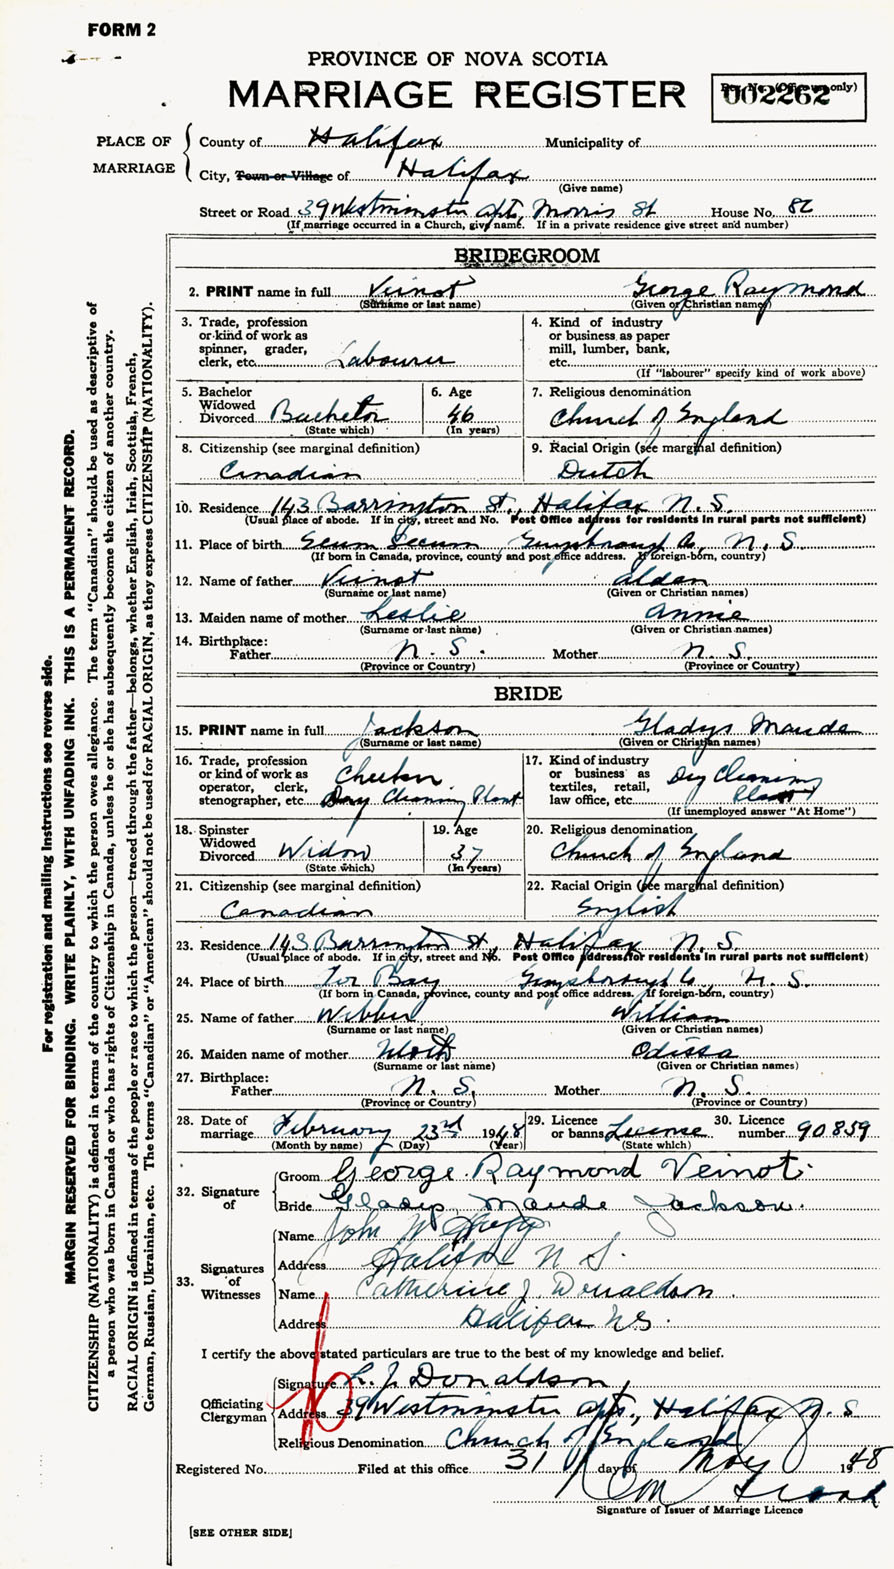 FORM 2
PROVINCE OF NOVA SCOTIA
MARRIAGE REGISTER
Reg. No. (Office use only)
002262
PLACE OF MARRIAGE
County of Halifax Municipality of
City, Town or Village of Halifax
(Give name)
Street or Road 39 Westminster Apts, Morris St House No. 82
(If marriage occurred in a Church, give name. If in a private residence give street and number)
BRIDEGROOM
2. PRINT name in full Veinot George Raymond
(Surname or last name) (Given or Christian names)
3. Trade, profession or kind of work as spinner, grader, clerk, etc. Labourer
4. Kind of industry or business as paper mill, lumber, bank, etc.
(If "labourer" specify kind of work above)
5. Bachelor Widowed Divorced Bachelor
(State which)
6. Age 46
(In years)
7. Religious denomination
Church of England
8. Citizenship (see marginal definition)
Canadian
9. Racial Origin (see marginal definition)
Dutch
10. Residence 143 Barrington St., Halifax N.S.
(Usual place of abode. If in city, street and No. Post Office address for residents in rural parts not sufficient)
11. Place of birth Secum Guysborough Co, N.S
(If born in Canada, province, county and post office address. If foreign-born, country)
12. Name of father Veinot Aldan
(Surname or last name) (Given or Christian names)
13. Maiden name of mother Leslie Annie
(Surname or last name) (Given or Christian names)
14. Birthplace:
Father N.S. Mother N.S.
(Province or Country) (Province or Country)
BRIDE
15. PRINT name in full Jackson Gladys Maude
(Surname or last name) (Given or Christian names)
16. Trade, profession or kind of work as operator, clerk, stenographer, etc. Checker
Dry Cleaning Plant
17. Kind of industry or business as textiles, retail, law office, etc. Dry Cleaning
Plant
(If unemployed answer "At Home")
18. Spinster Widowed Divorced Widow
(State which)
19. Age 37
(In years)
20. Religious denomination
Church of England
21. Citizenship (see marginal definition)
Canadian
22. Racial Origin (see marginal definition)
English
23. Residence 143 Barrington St, Halifax N.S.
(Usual place of abode. If in city, street and No. Post Office address for residents in rural parts not sufficient)
24. Place of birth Tor Bay Guysborough Co, N.S.
(If born in Canada, province, county and post office address. If foreign-born, country)
25. Name of father Webber William
(Surname or last name) (Given or Christian names)
26. Maiden name of mother Odissa
(Surname or last name) (Given or Christian names)
27. Birthplace:
Father N.S. Mother N.S.
(Province or Country) (Province or Country)
28. Date of marriage February 23rd 1948
(Month by name) (Day) (Year)
29. Licence or banns License
(State which)
30. Licence number 90859
32. Signature of
Groom George Raymond Veinot.
Bride Gladys Maude Jackson.
33. Signatures of Witnesses
Name John W
Address Halifax N S.
Name Catherine J. Donaldson.
Address Halifax N S.
I certify the above stated particulars are true to the best of my knowledge and belief.
Officiating Clergyman
Signature L. J. Donaldson,
Address 39 Westminster Apts., Halifax N.S
Religious Denomination Church of England
Registered No. Filed at this office 31 day of May 1948
Signature of Issuer of Marriage Licence
[SEE OTHER SIDE]
For registration and mailing instructions see reverse side.
MARGIN RESERVED FOR BINDING. WRITE PLAINLY, WITH UNFADING INK. THIS IS A PERMANENT RECORD.
CITIZENSHIP (NATIONALITY) is defined in terms of the country to which the person owes allegiance. The term "Canadian" should be used as descriptive of
a person who was born in Canada or who has rights of Citizenship in Canada, unless he or she has subsequently become the citizen of another country.
RACIAL ORIGIN is defined in terms of the people or race to which the person—traced through the father—belongs, whether English, Irish, Scottish, French,
German, Russian, Ukrainian, etc. The terms "Canadian" or "American" should not be used for RACIAL ORIGIN, as they express CITIZENSHIP (NATIONALITY).